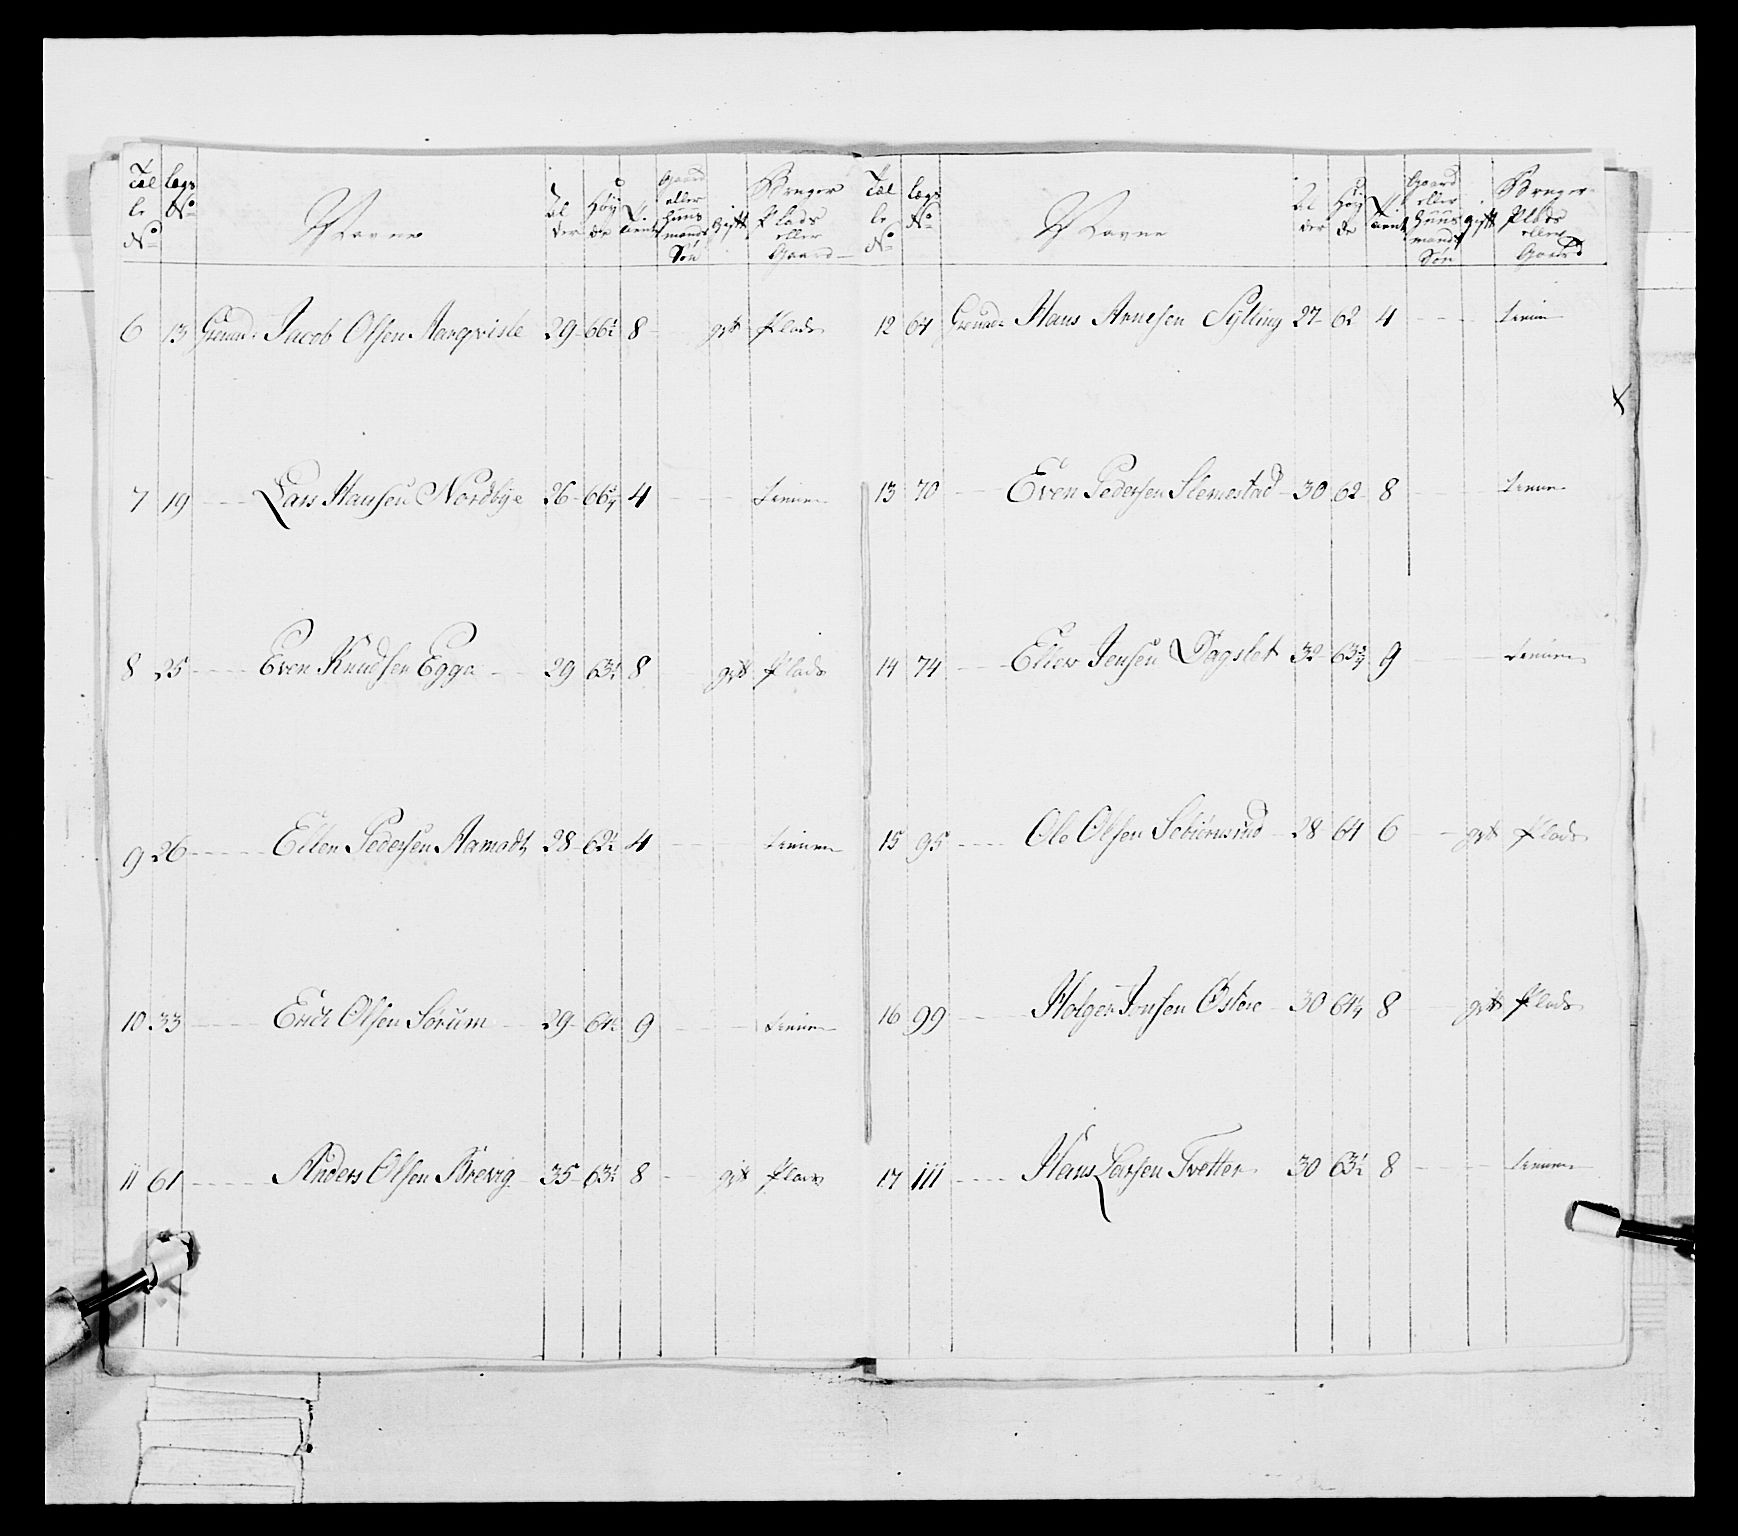 Tæl le No | Lægs No | Navne | Al der | Høÿ de | Tient | Gaard eller Huus mands Søn | Gift | Bruger Plads eller Gaard
6 13 Grenad: Jacob Olsen Aarqvisle 29 66½ 8 – gt Plads
7 19 – Lars Hansen Nordbÿe 26 66¼ 4 – – tienner
8 25 – Even Knudsen Egge – 29 63½ 8 – gt Plads
9 26 – Ellen Pedersen Aamodt 28 62½ 4 – – tienner
10 33 – Erich Olsen Sørum – 29 64½ 9 – – tienner
11 61 – Anders Olsen Brevig 35 63½ 8 – gt Plads
Tæl le No | Lægs No | Navne | Al der | Høÿ de | Tient | Gaard eller Huus mands Søn | Gift | Bruger Plads eller Gaard
12 64 Grenad: Hans Arnesen Sÿlling 27 62 4 – – tienner
13 70 – Even Pedersen Slemestad 30 62 8 – tienner
14 74 – Ellev Jensen Dagslet 30 63¾ 9 – tienner
15 95 – Ole Olsen 28 64 6 – gt Plads
16 99 – Holger Jonsen Østere 30 64¼ 8 – gt Plads
17 111 – Hans Larsen Tvetter 30 63½ 8 – – tienner